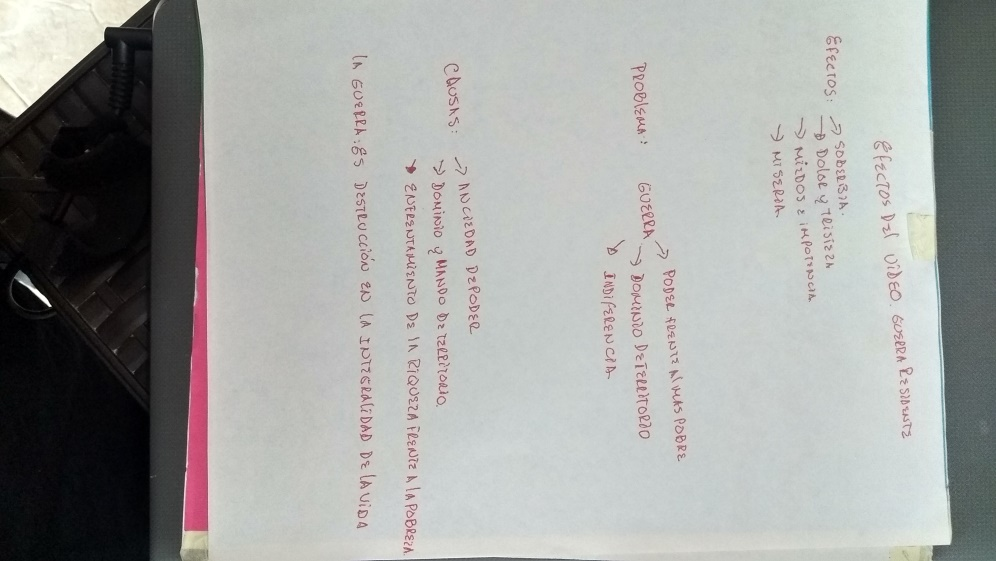 EFECTOS DEL VIDEO. GUERRA RESIDENTE
EFECTOS: → SOBERBIA.
→ DOLOR Y TRISTEZA
→ MIEDOS E IMPOTENCIA
→ MISERIA.
→ PODER FRENTE AL MAS POBRE
PROBLEMA: GUERRA → DOMINIO DE TERRITORIO
→ INDIFERENCIA.
CAUSAS: → ANCIEDAD DE PODER
→ DOMINIO Y MANDO DE TERRITORIO.
→ ENFRENTAMIENTO DE LA RIQUEZA FRENTE A LA POBREZA.
LA GUERRA: ES DESTRUCCIÓN EN LA INTEGRALIDAD DE LA VIDA